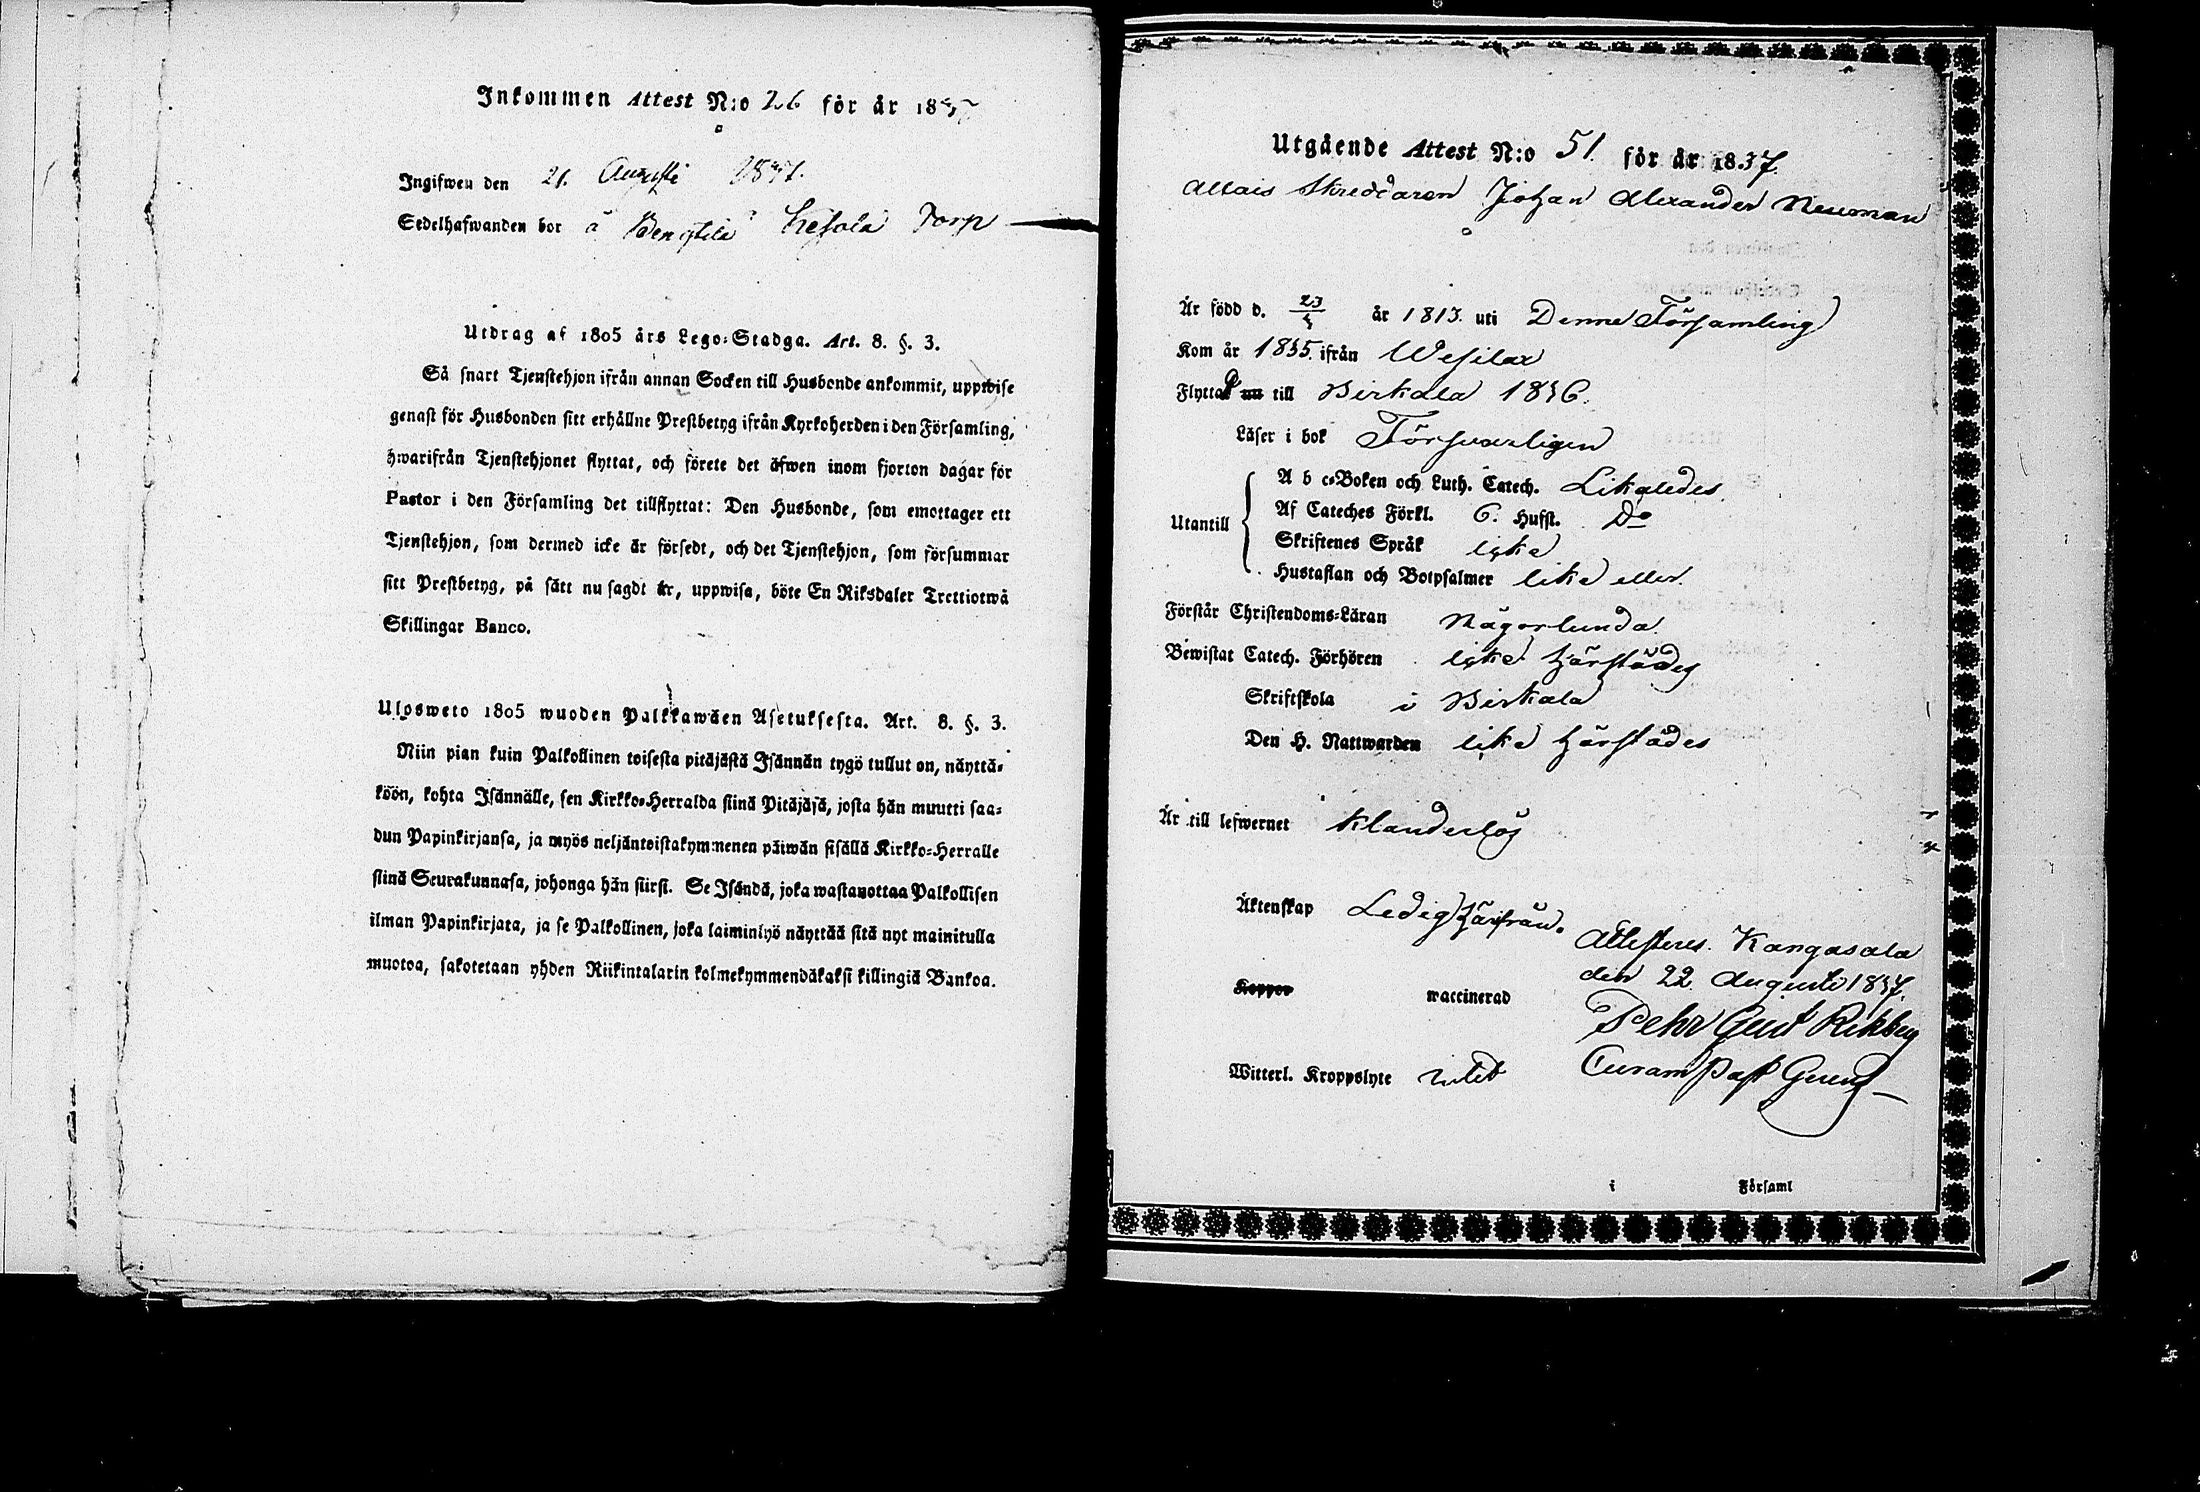 Inkommen Attest N:o 26 för år 1837
Ingifwen den 21. Augusti 1837.
Sedelhafwanden bor å Bengtilä Torp
Utdrag af 1805 års Lego-Stadga. Art. 8. §. 3.
Så snart Tjenstehjon ifrån annan Socken till Husbonde ankommit, uppwise
genast för Husbonden sitt erhållne Prestbetyg ifrån Kyrkoherden i den Församling,
hwarifrån Tjenstehjonet flyttat, och förete det äfwen inom fjorton dagar för
Pastor i den Församling det tillflyttat: Den Husbonde, som emottager ett
Tjenstehjon, som dermed icke är försedt, och det Tjenstehjon, som försummar
sitt Prestbetyg, på sätt nu sagdt är, uppwisa, böte En Riksdaler Trettiotwå
Skillingar Banco.
Ulosweto 1805 wuoden Palkkawäen Asetuksesta. Art. 8. §. 3.
Niin pian kuin Palkollinen toisesta pitäjästä Isännän tygö tullut on, näyttä-
köön, kohta Isännälle, sen Kirkko-Herralda siinä Pitäjäsä, josta hän muutti saa-
dun Papinkirjansa, ja myös neljäntoistakymmenen päiwän sisällä Kirkko-Herralle
siinä Seurakunnasa, johonga hän siirsi. Se Isändä, joka wastanottaa Palkollisen
ilman Papinkirjata, ja se Palkollinen, joka laiminlyö näyttää sitä nyt mainitulla
muotoa, sakotetaan yhden Riikintalarin kolmekymmendäkaksi killingiä Bankoa.
Utgående Attest N:o 51. för år 1837.
Skreddaren Johan Alexander Neuman
Är född d. 23/5 år 1813. uti Denne Församling
Kom år 1835. ifrån Wesilax
Flyttat nu till Birkala 1836.
Läser i bok Försvarligen
A b c-Boken och Luth. Catech. Likaledes.
Utantill Af Cateches Förkl. 6. Hufst. Do
Skriftenes Språk lika
Hustaflan och Botpsalmer lika eller.
Förstår Christendoms-Läran Någorlunda.
Bewistat Catech. Förhören lika härstädes
Skriftskola i Birkala
Den H. Nattwarden lika härstädes
Är till lefwernet Klanderlös
Äktenskap Ledig härifrån.
Attesteres. Kangasala
den 22 Augusti 1837.
Koppor waccinerad
Pehr Gust
Witterl. Kroppslyte
i Församl